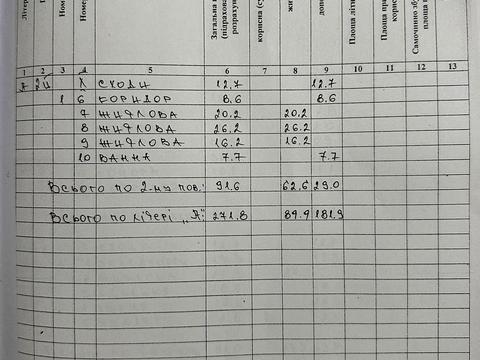 Літер
Ном
Номер
Загальна
(підрахова
розрахун
корисна (су
жи
допо
Площа літн
Площа при
корис
Самочинно зб
площа
1 2 3 4 5 6 7 8 9 10 11 12 13
А 2й X СХОДИ 12.7 12.7
1 6 КОРИДОР 8.6 8.6
7 ЖИТЛОВА 20.2 20.2
8 ЖИТЛОВА 26.2 26.2
9 ЖИТЛОВА 16.2 16.2
10 ВАННА 7.7 7.7
ВСЬОГО ПО 2-му пов.: 91.6 62.6 29.0
ВСЬОГО ПО літері „А": 271.8 89.9 181.9